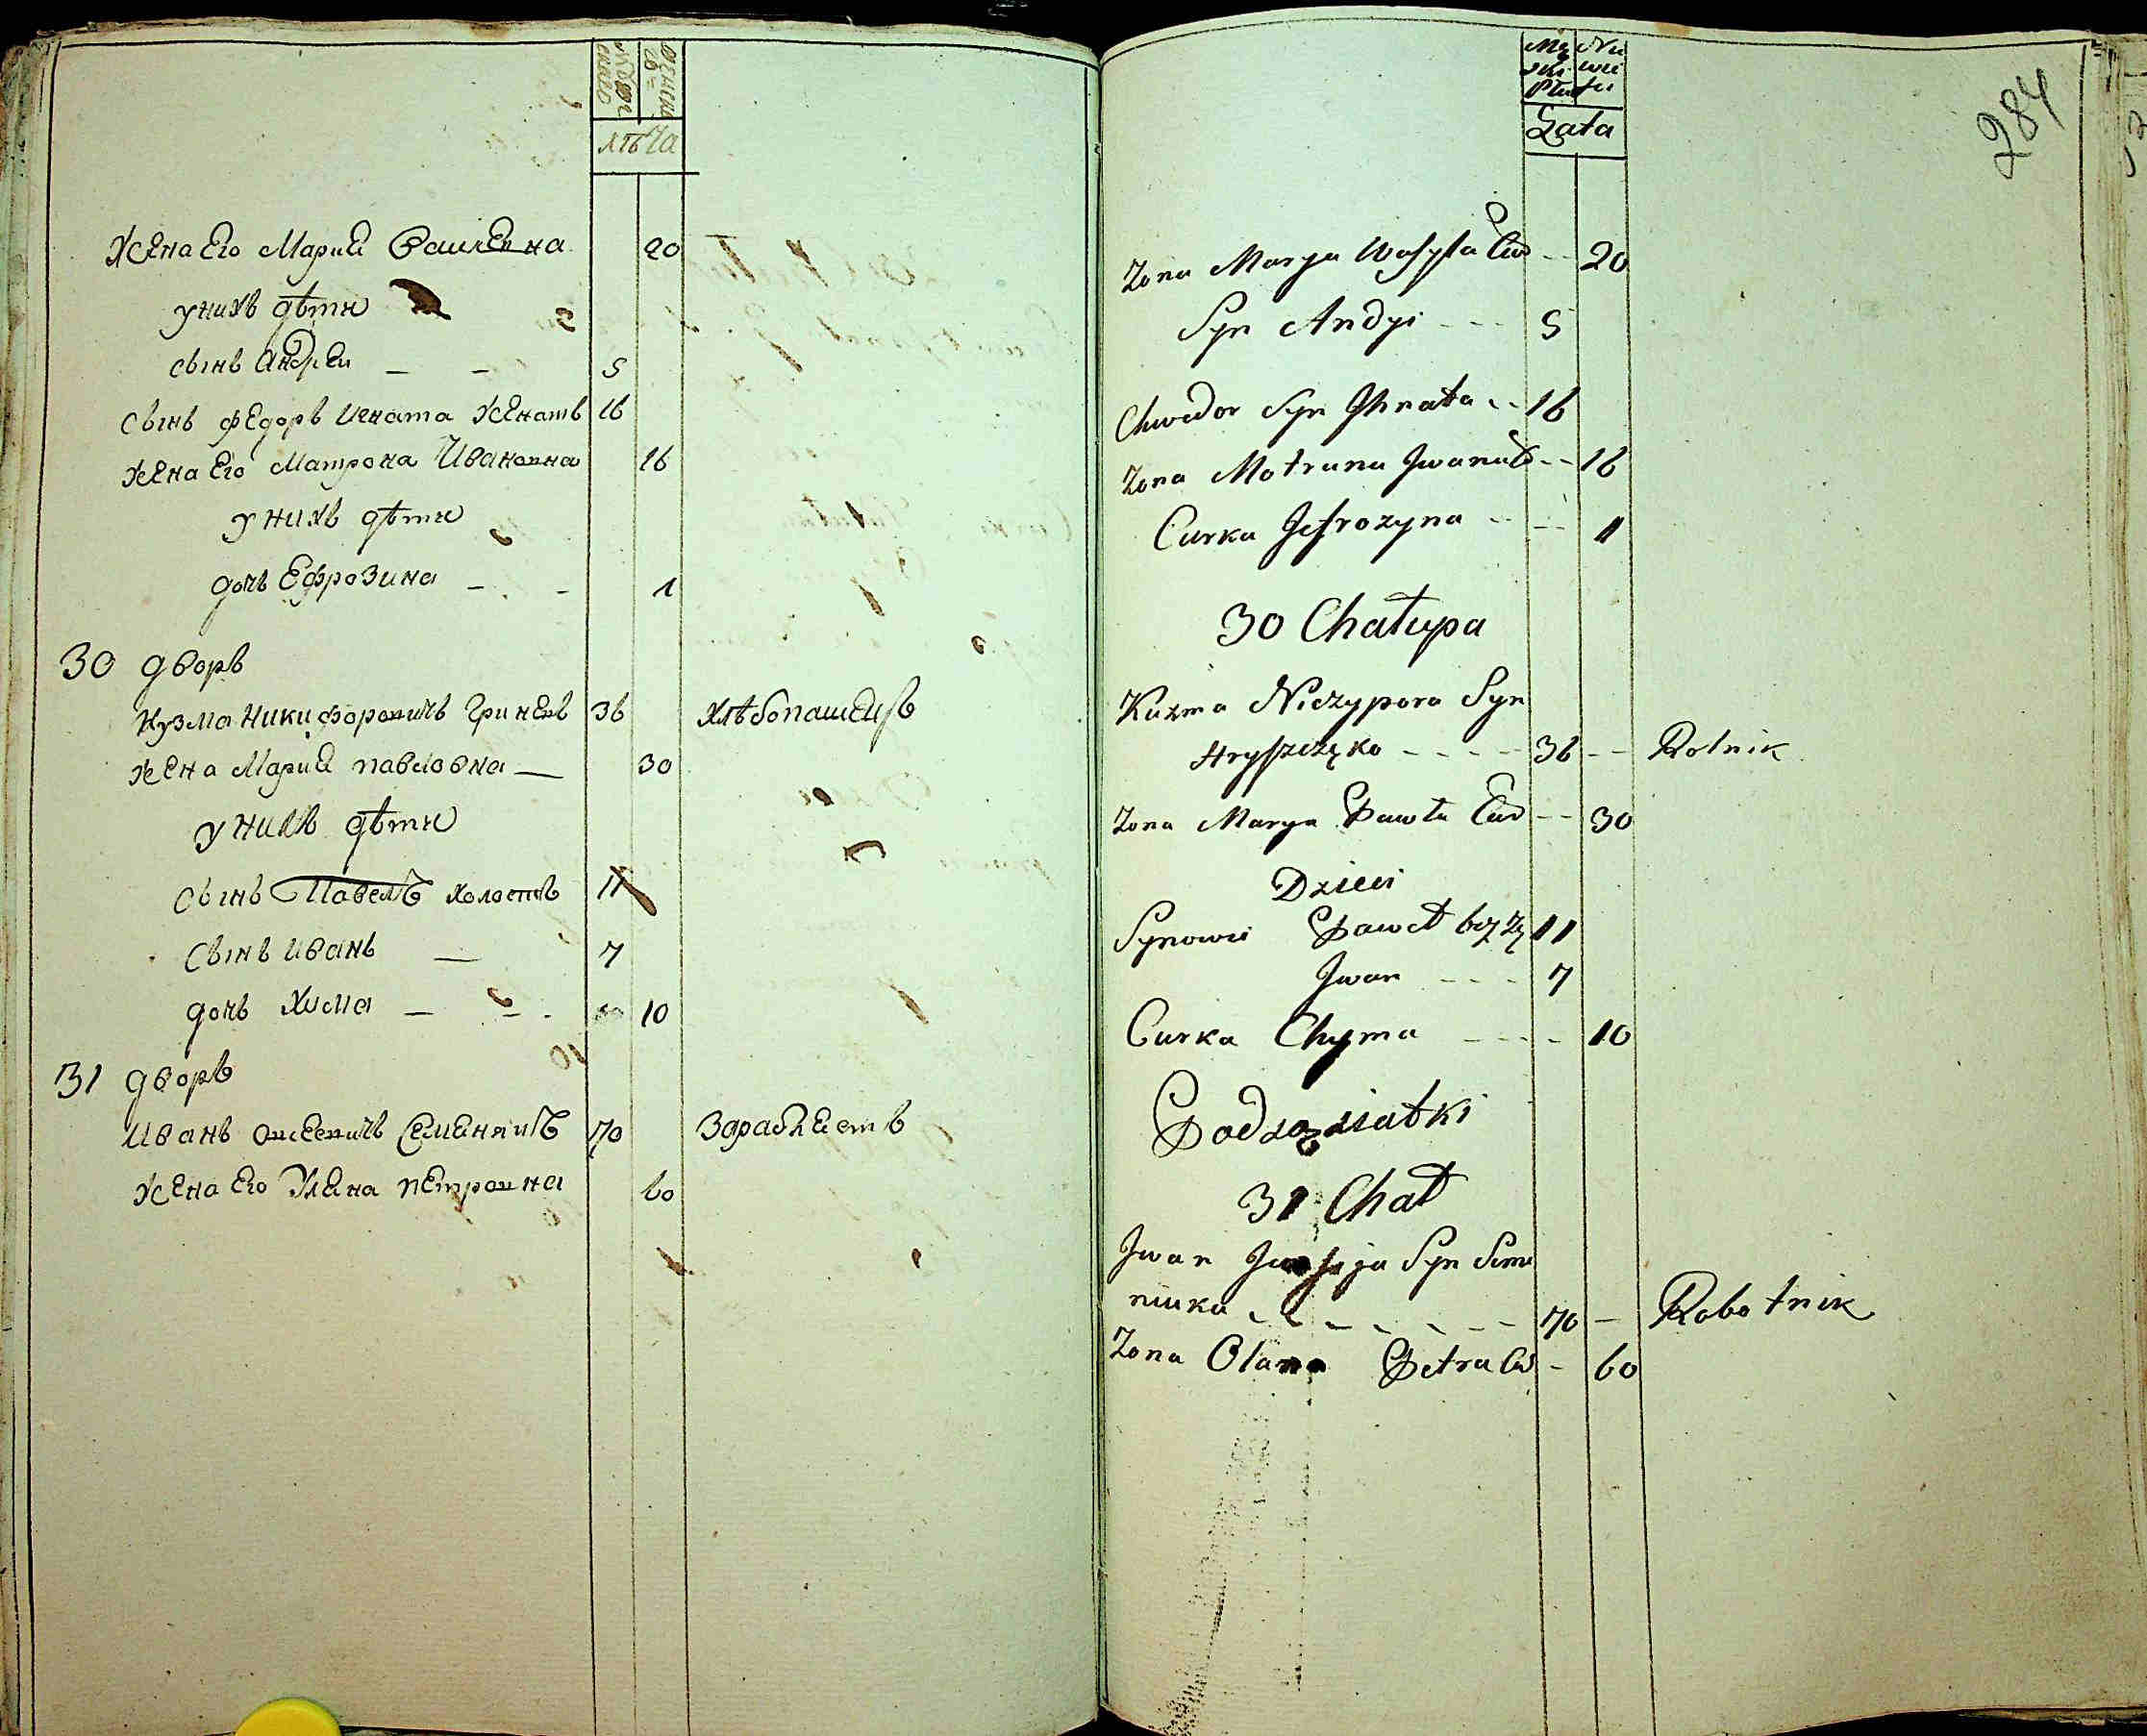 мужеска
женска
лѣта
жена его Мария Василевна 20
у нихъ дѣти
сынъ Андреи — — 5
сынъ Федоръ Игната женатъ 16
жена его Матрона Ивановна 16
у нихъ дѣти
дочь Ефрозина — — 1
30 дворъ
Кузма Никифоровичъ 36 хлѣбопашецъ
жена Мария Павловна — 30
у нихъ дѣти
сынъ Павелъ холостъ 11
сынъ Иванъ — 7
дочь Хима — — 10
31 дворъ
Иванъ Семенякъ 70
жена его Улена Петровна 60
284
Lata
Zona Marya Wasyla Cur -- 20
Syn Andyi --- 5
Chwedor Syn Ihnata -- 16
Zona Motruna Iwana C -- 16
Curka Jefrozyna -- -- 1
30 Chałupa
Kuzma Niczypora Syn
Hryszczęko ---- 36 -- Rolnik
Zona Marya Pawła Cur -- 30
Dzieci
Synowie Paweł bez Zo 11
Iwan --- 7
Curka Chyma ---- 10
Podsosiatki
31 Chał
Iwan Syn Seme
niuka ------ 70 - Robotnik
Zona Olana Petra Cu - 60